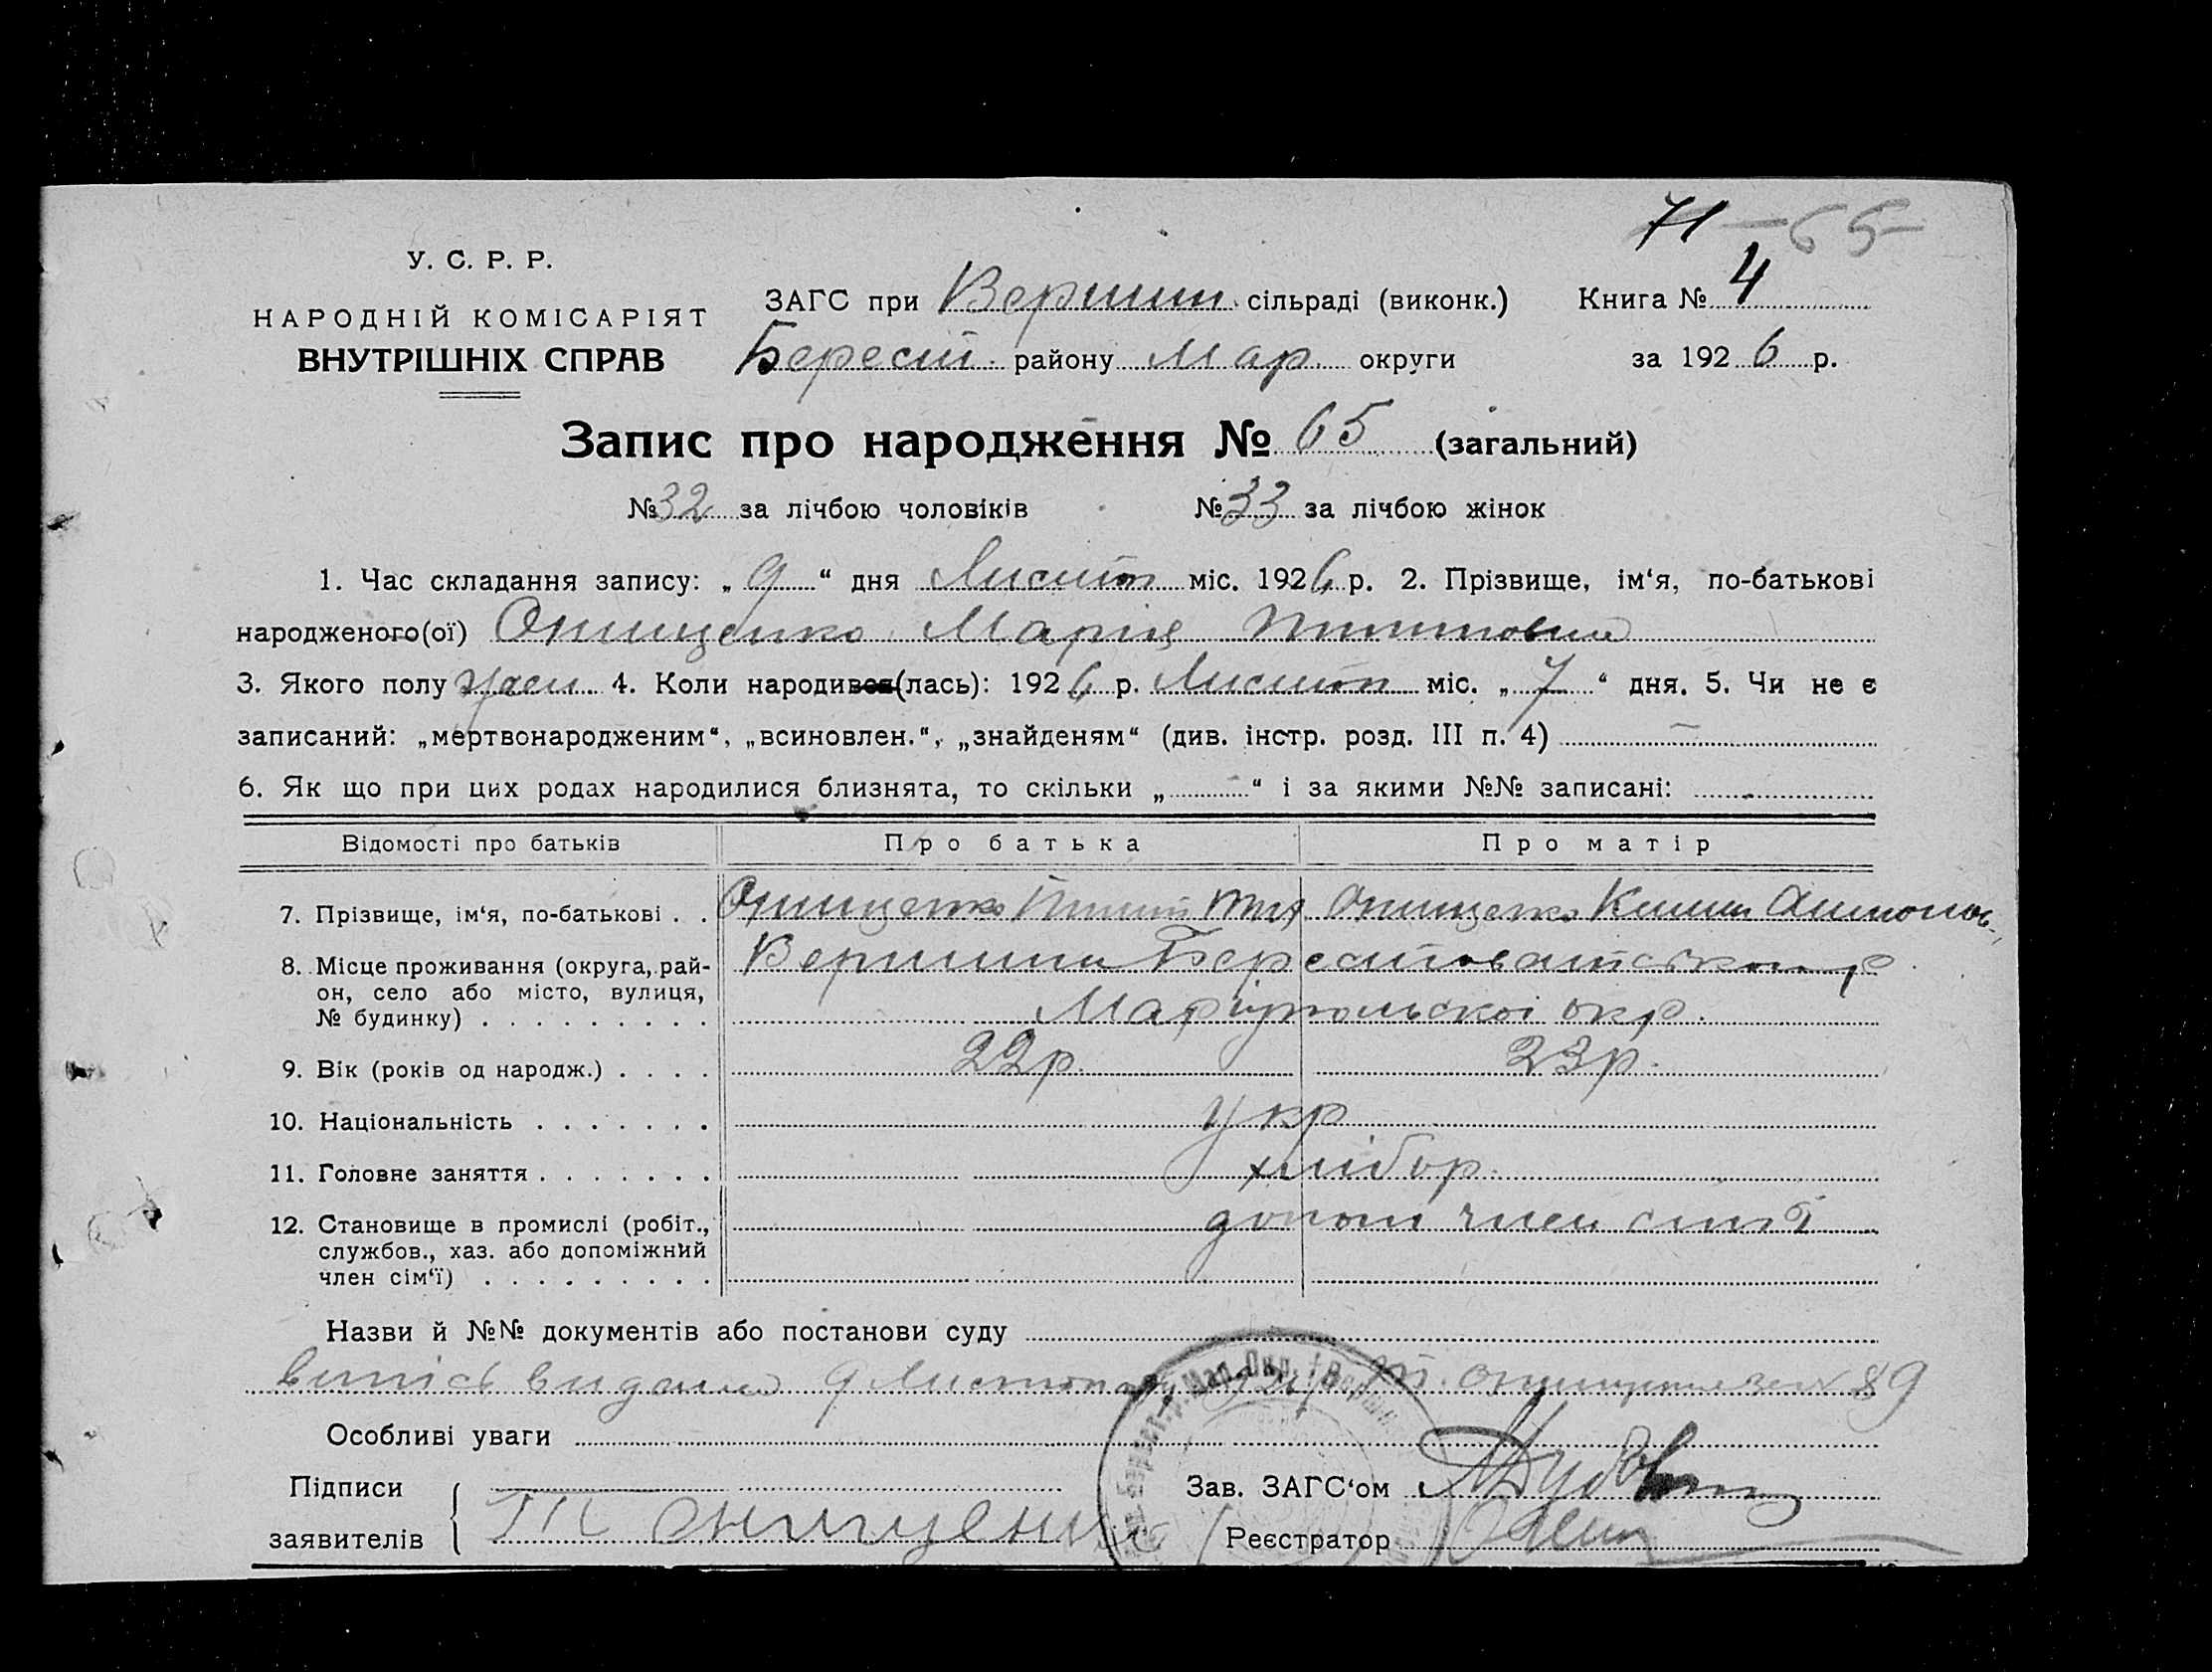 71 — 65
У. С. Р. Р.
НАРОДНІЙ КОМІСАРІЯТ
ВНУТРІШНІХ СПРАВ
ЗАГС при Вершин. сільраді (виконк.) Книга № 4
Берест. району Мар. округи за 1926 р.
Запис про народження № 65 (загальний)
№ 32 за лічбою чоловіків № 33 за лічбою жінок
1. Час складання запису: „ 9 “ дня Листоп міс. 1926 р. 2. Прізвище, ім‘я, по-батькові
народженого(ої) Онищенко Марія
3. Якого полу жен. 4. Коли народився(лась): 1926 р. Листоп міс. „ 7 “ дня. 5. Чи не є
записаний: „мертвонародженим“, „всиновлен.“, „знайденям“ (див. інстр. розд. III п. 4)
6. Як що при цих родах народилися близнята, то скільки „ “ і за якими №№ записані:
Відомості про батьків Про батька Про матір
7. Прізвище, ім‘я, по-батькові . . Онищенко Онищенко
8. Місце проживання (округа, рай-
он, село або місто, вулиця,
№ будинку) . . . . . . . . .
Вершина Берестоватськ р
Маріупольскоі окр.
9. Вік (років од народж.) . . . . 22р. 23р.
10. Національність . . . . . . . укр
11. Головне заняття . . . . . . . хлібор.
12. Становище в промислі (робіт.,
службов., хаз. або допоміжний
член сім‘ї) . . . . . . . . .
допом член сімї
Назви й №№ документів або постанови суду
витісь видана 9 Листопаду 89
Особливі уваги
Підписи
заявителів
Онищенко
Зав. ЗАГС‘ом
Реєстратор